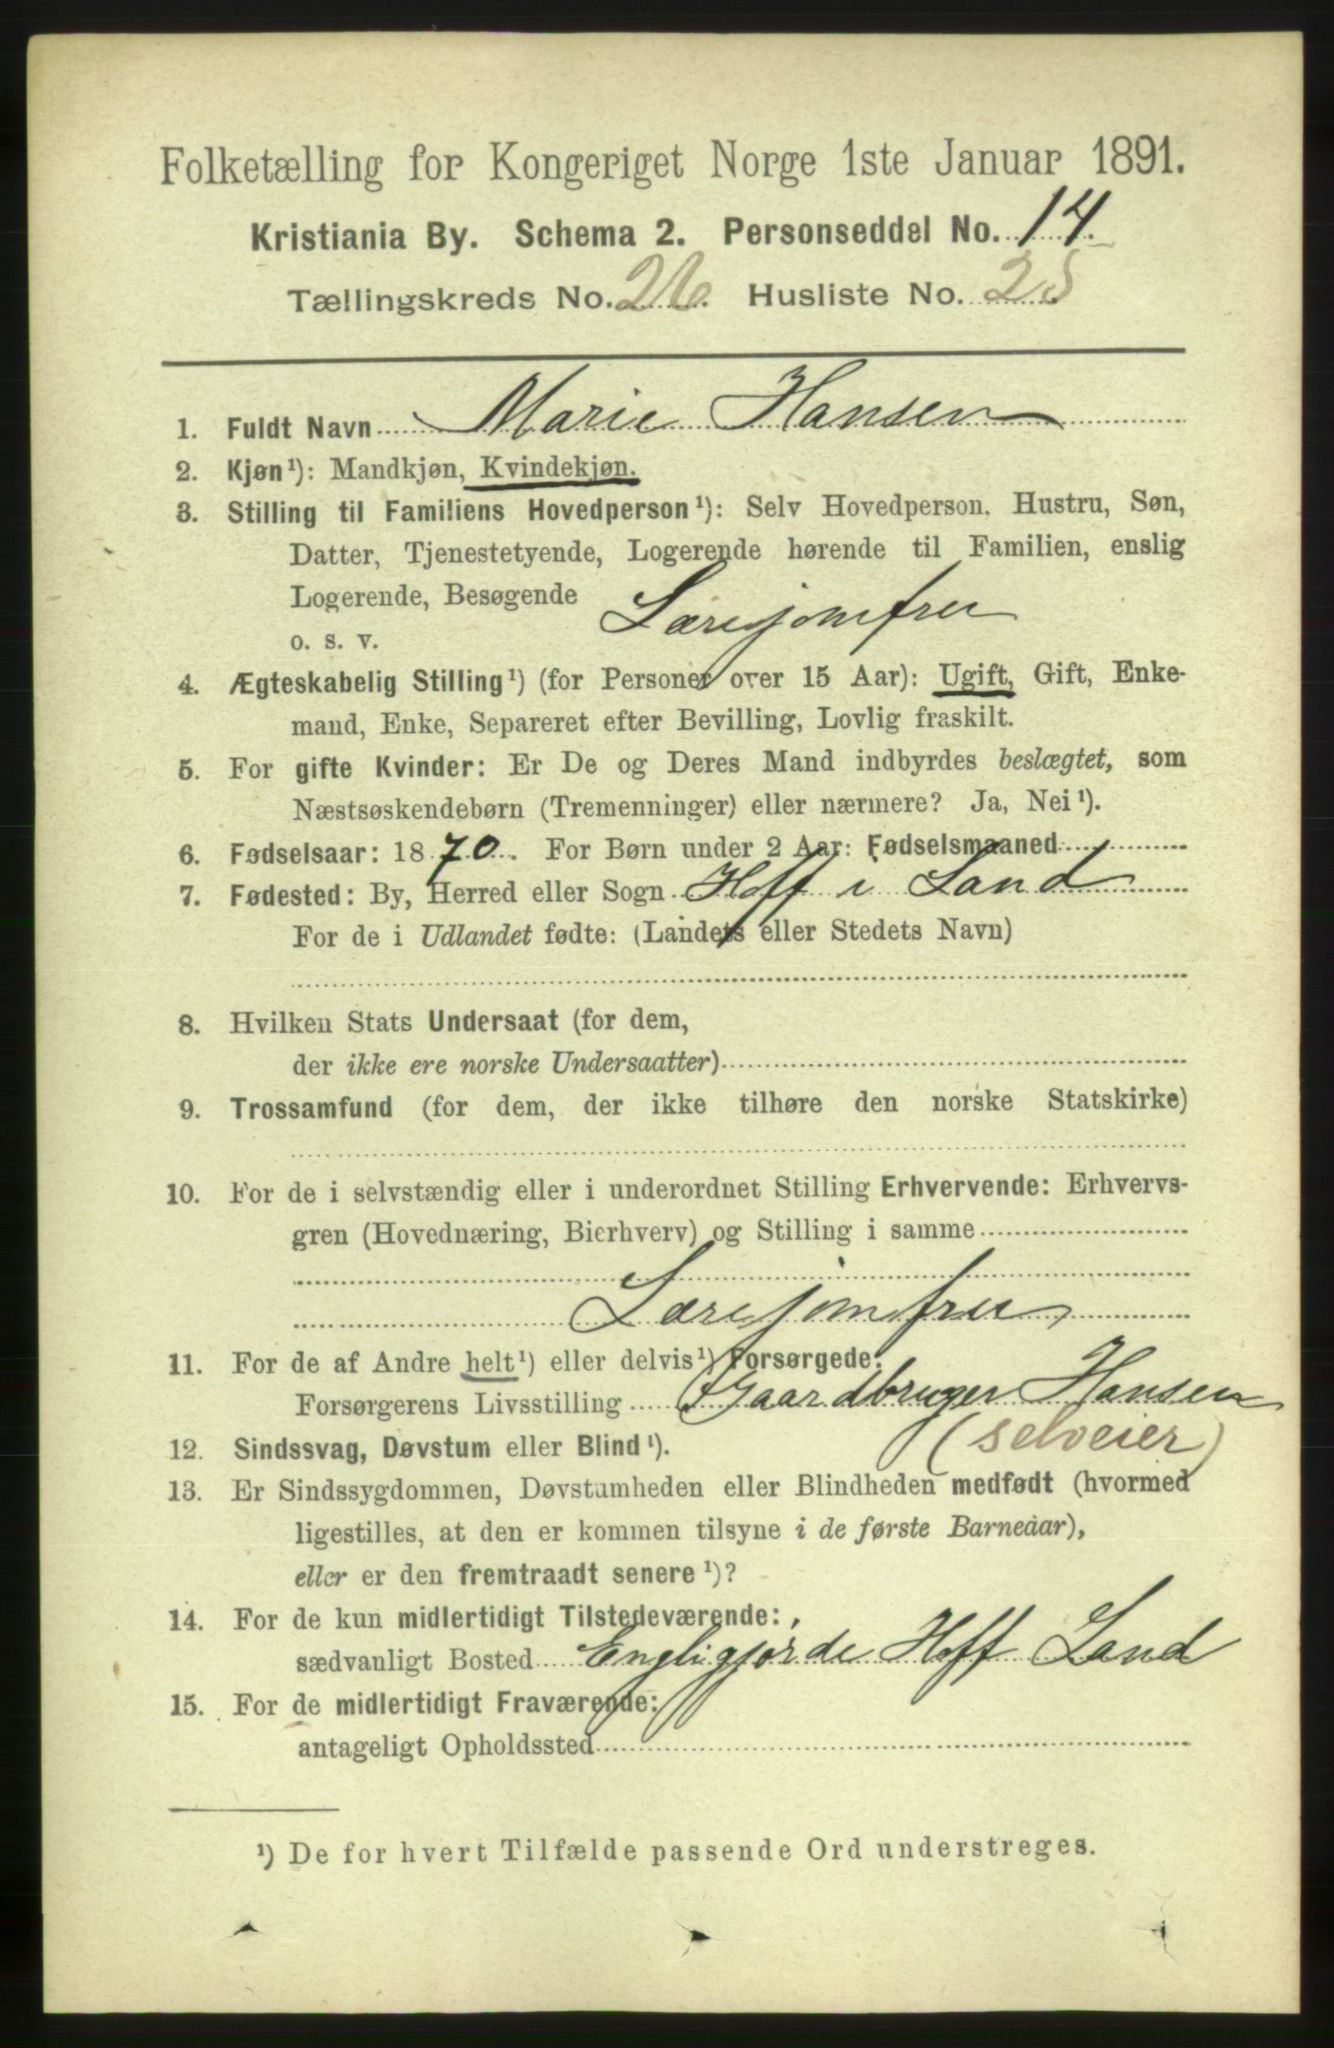 Folketælling for Kongeriget Norge 1ste Januar 1891.
Kristiania By. Schema 2. Personseddel No. 14.
Tællingskreds No. 26. Husliste No. 25
1. Fuldt Navn Marie Hansen
2. Kjøn¹): Mandkjøn, Kvindekjøn.
3. Stilling til Familiens Hovedperson¹): Selv Hovedperson. Hustru, Søn,
Datter, Tjenestetyende, Logerende hørende til Familien, enslig
Logerende, Besøgende Lærejomfru
o. s. v.
4. Ægteskabelig Stilling¹) (for Personer over 15 Aar): Ugift, Gift, Enke-
mand, Enke, Separeret efter Bevilling, Lovlig fraskilt.
5. For gifte Kvinder: Er De og Deres Mand indbyrdes beslægtet, som
Næstsøskendebørn (Tremenninger) eller nærmere? Ja, Nei¹).
6. Fødselsaar: 1870. For Børn under 2 Aar: Fødselsmaaned
7. Fødested: By, Herred eller Sogn Hoff i Land
For de i Udlandet fødte: (Landets eller Stedets Navn)
8. Hvilken Stats Undersaat (for dem,
der ikke ere norske Undersaatter)
9. Trossamfund (for dem, der ikke tilhøre den norske Statskirke)
10. For de i selvstændig eller i underordnet Stilling Erhvervende: Erhvervs-
gren (Hovednæring, Bierhverv) og Stilling i samme
Lærejomfru
11. For de af Andre helt¹) eller delvis¹) Forsørgede:
Forsørgerens Livsstilling Gaardbruger Hansen
(selveier)
12. Sindssvag, Døvstum eller Blind¹).
13. Er Sindssygdommen, Døvstumheden eller Blindheden medfødt (hvormed
ligestilles, at den er kommen tilsyne i de første Barneaar),
eller er den fremtraadt senere¹)?
14. For de kun midlertidigt Tilstedeværende:
sædvanligt Bosted Engligjorde Hoff Land
15. For de midlertidigt Fraværende:
antageligt Opholdssted
¹) De for hvert Tilfælde passende Ord understreges.